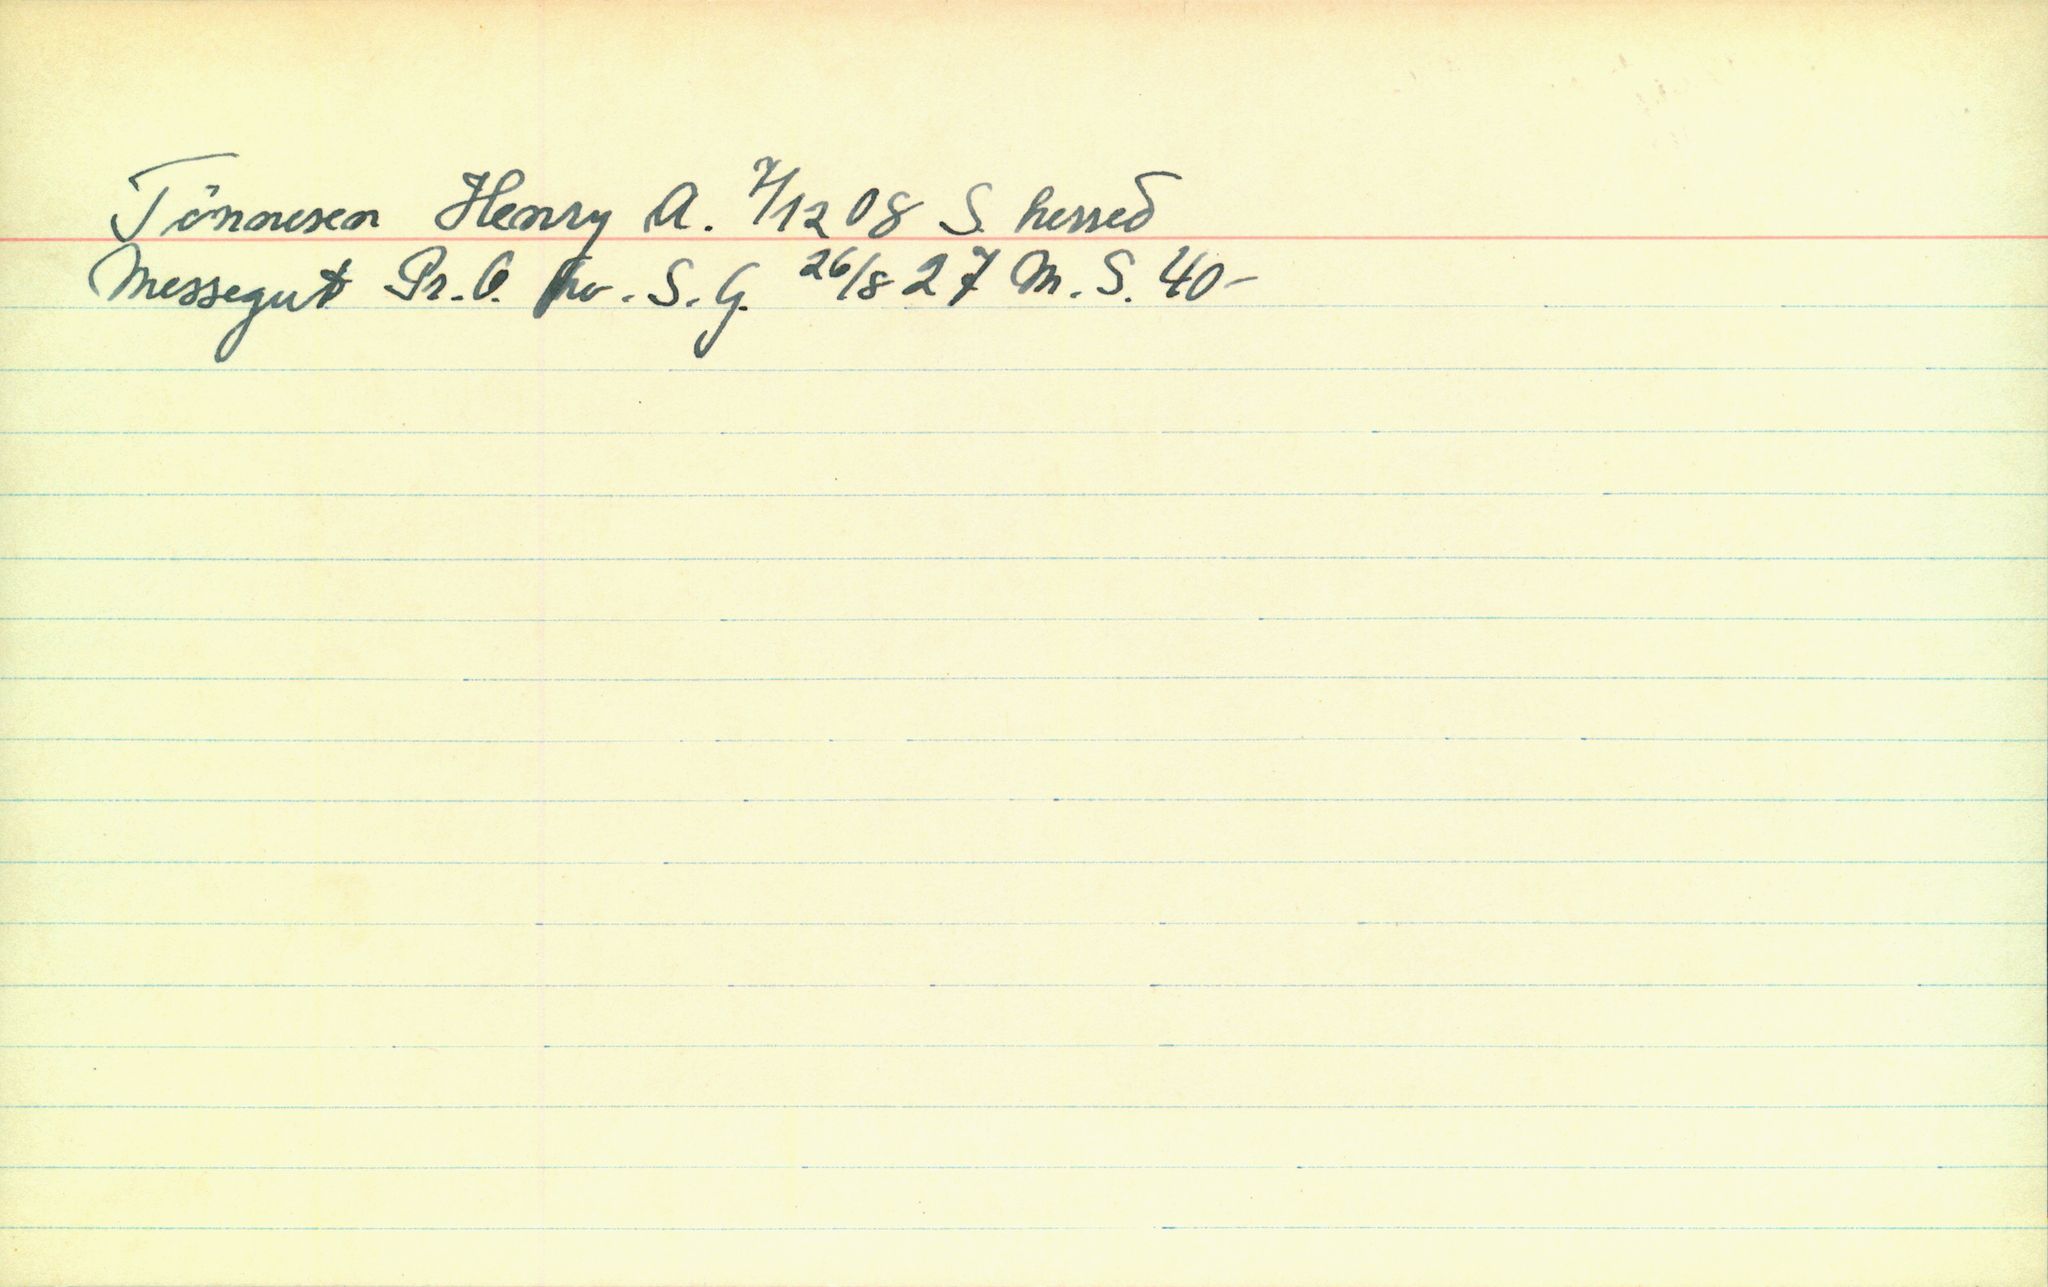 Tönnesen Henry A. 7/12 08 S. herred
Messegut Pr. O. hv. S. G. 26/8 27 M. S. 40-